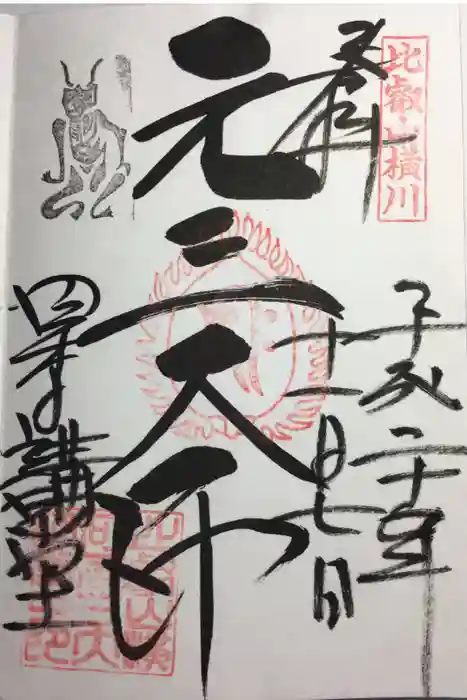 奉拝
比叡山横川
平成二十年
十一月七日
元三大師
四季講堂